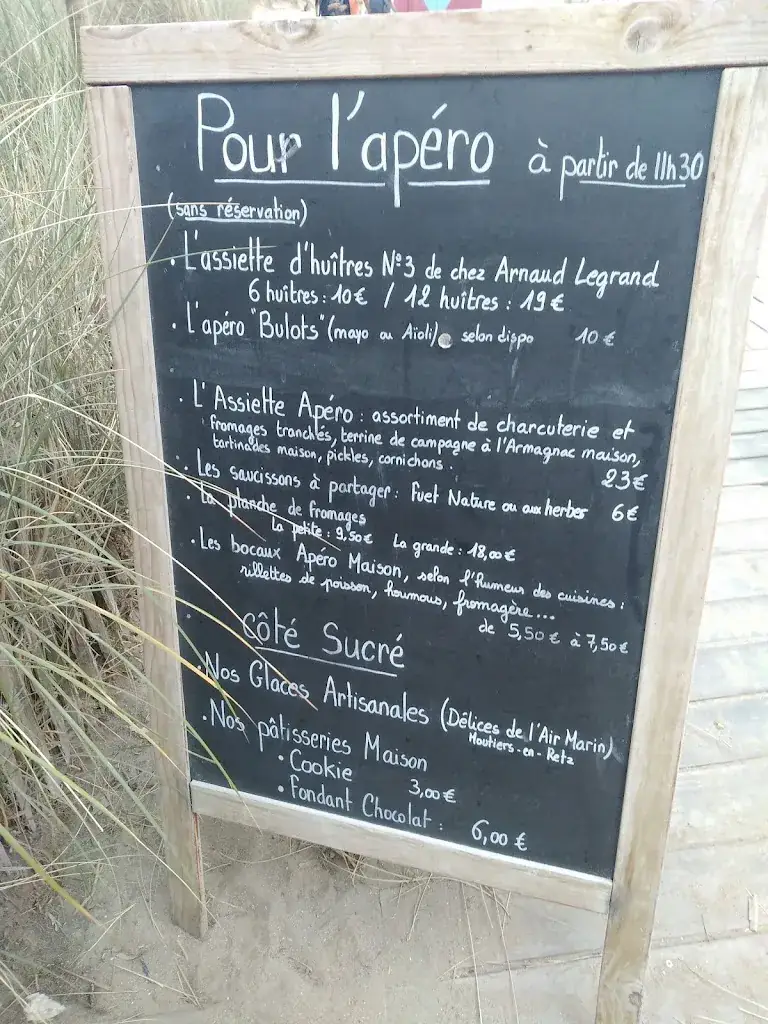 Pour l'apéro à partir de 11h30
(sans réservation)
. L'assiette d'huîtres N°3 de chez Arnaud Legrand
6 huîtres : 10€ / 12 huîtres : 19€
. L'apéro "Bulots" (mayo ou Aïoli) selon dispo 10€
. L'Assiette Apéro : assortiment de charcuterie et
fromages tranchés, terrine de campagne à l'Armagnac maison,
tartinades maison, pickles, cornichons. 23€
. Les saucissons à partager : Fuet Nature ou aux herbes 6€
. La planche de fromages
La petite : 9,50€ La grande : 18,00€
. Les bocaux Apéro Maison, selon l'humeur des cuisines :
rillettes de poisson, houmous, fromagère...
de 5,50€ à 7,50€
côté Sucré
. Nos Glaces Artisanales (Délices de l'Air Marin)
Moutiers-en-Retz
. Nos pâtisseries Maison
. Cookie 3,00€
. Fondant Chocolat : 6,00€